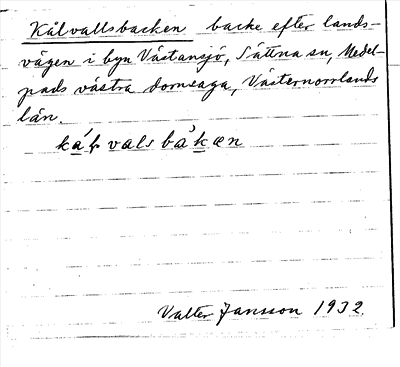 Kålvallsbacken backe efter lands-
vägen i byn Västansjö, Sättna sn, Medel-
pads västra domsaga, Västernorrlands
län.
Valter Jansson 1932.